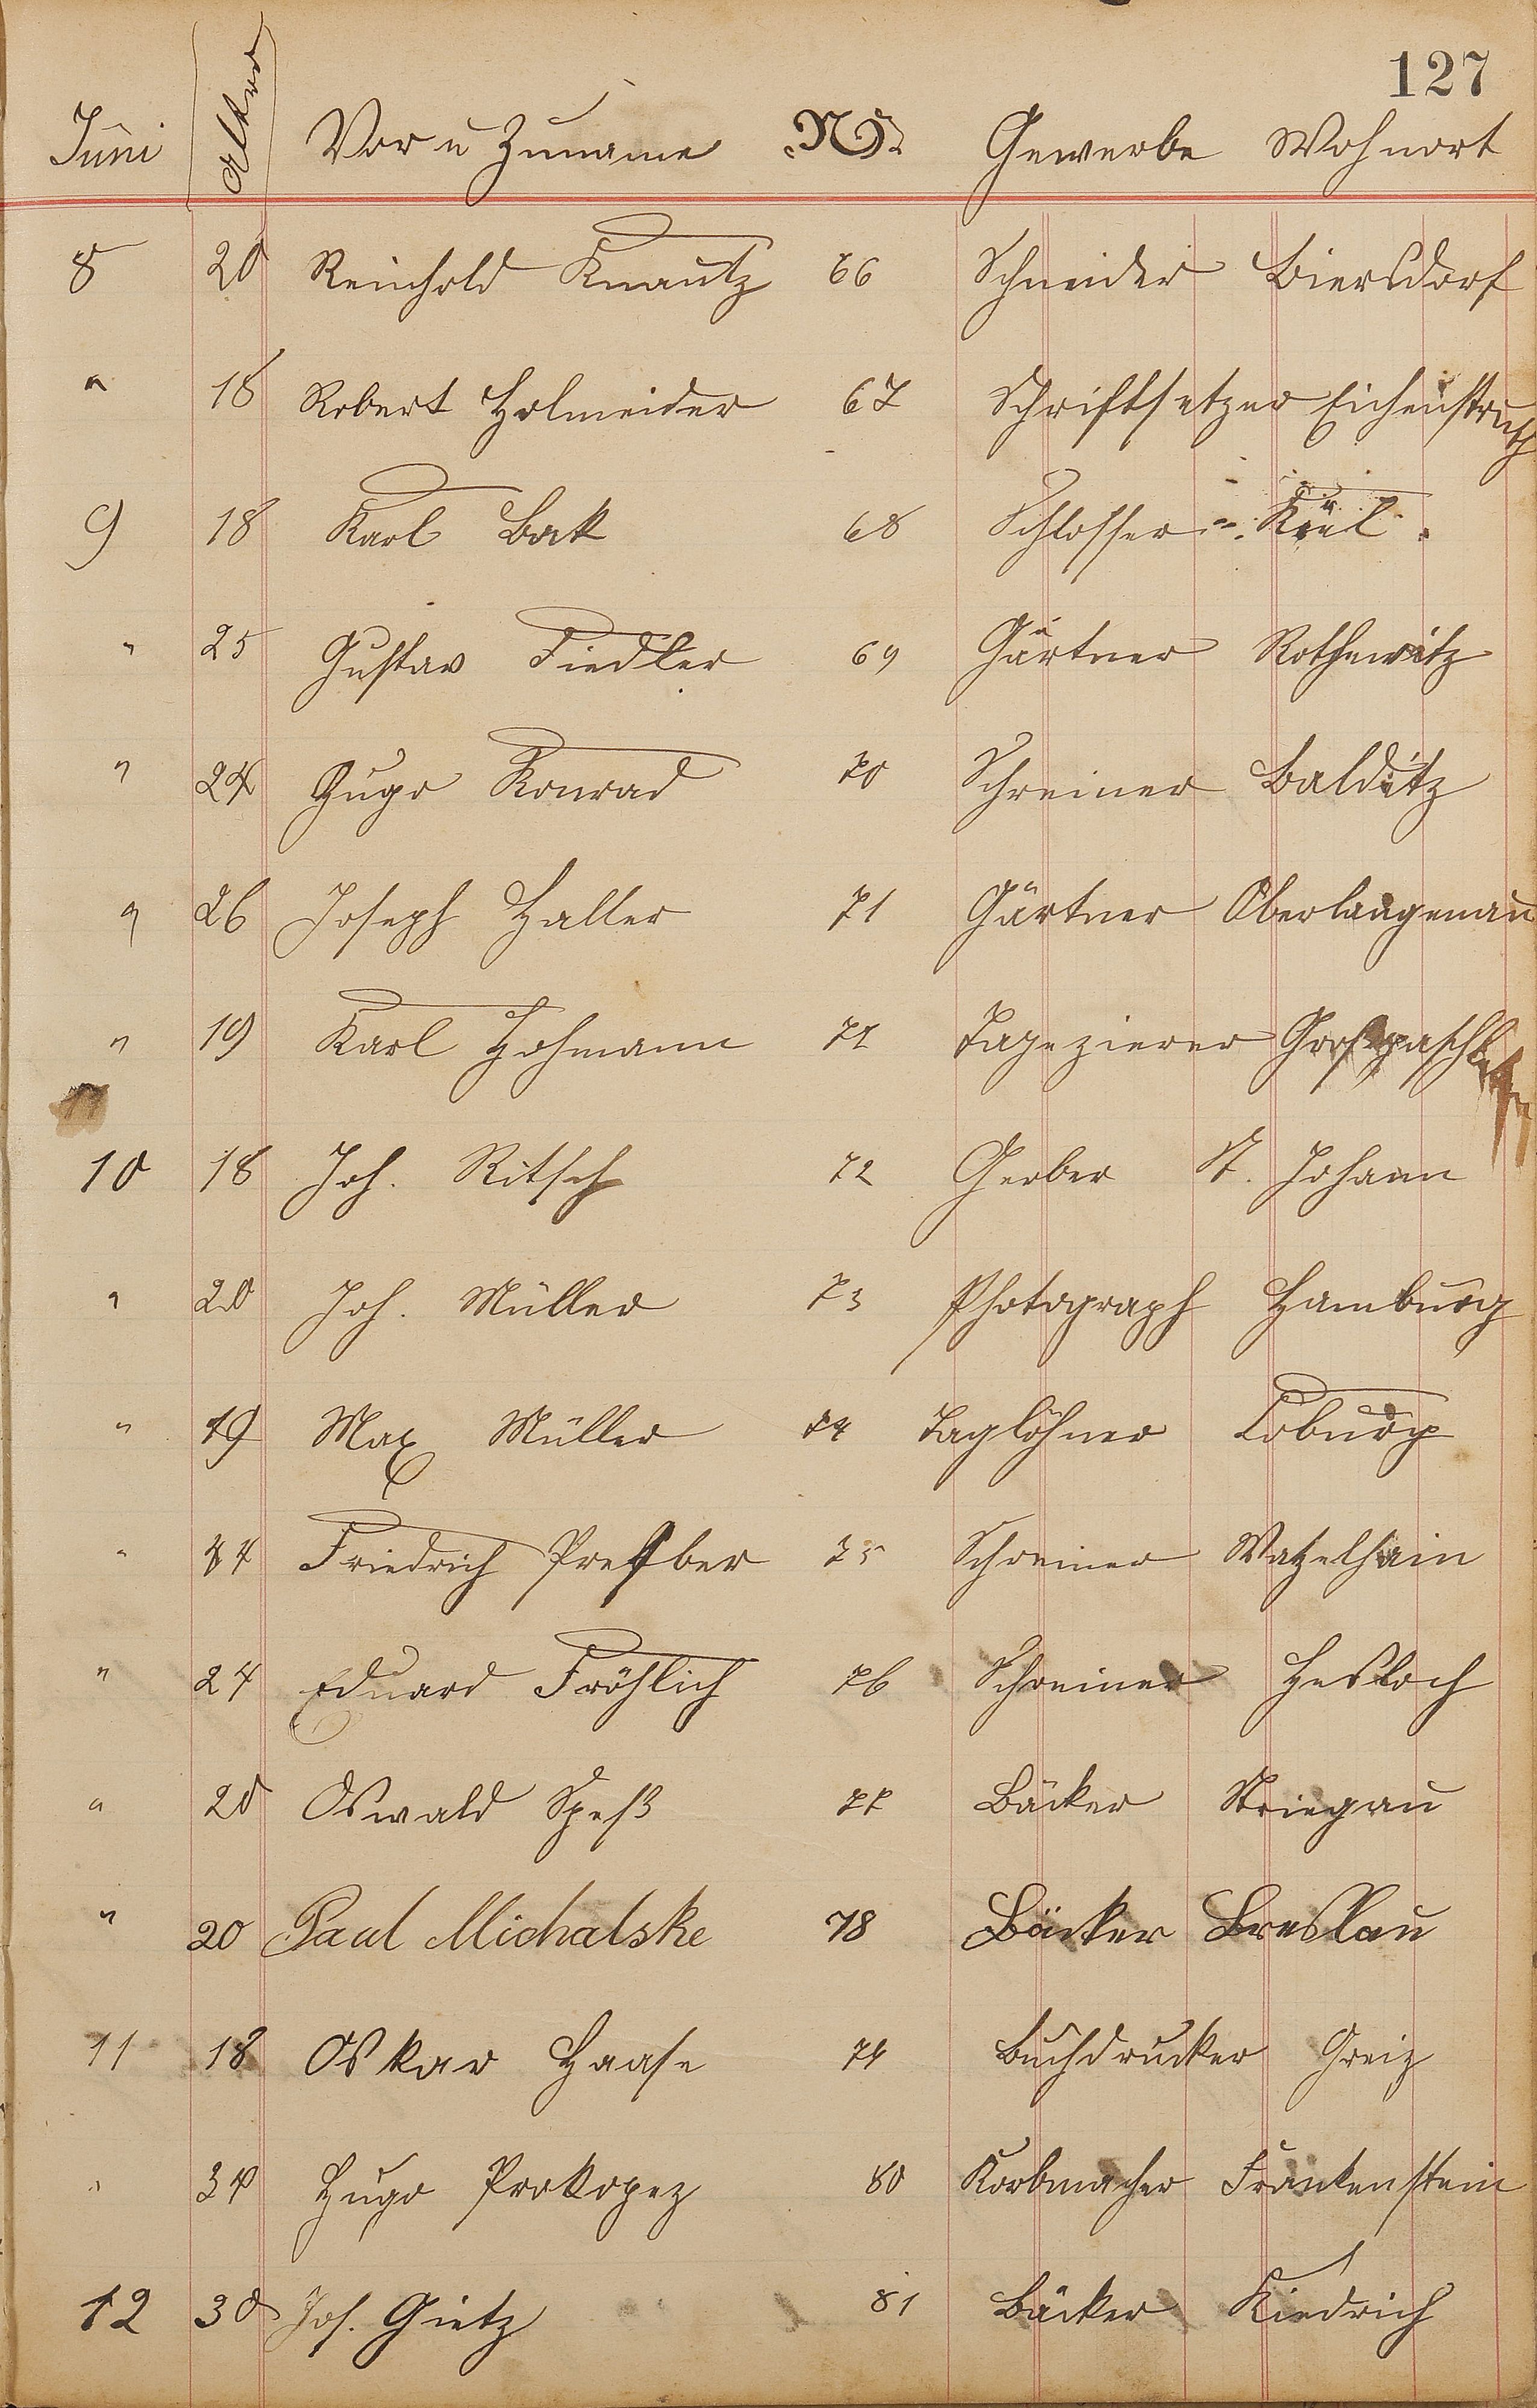 127
Juni Alter Vor u Zuname No. Gewerbe Wohnort
8 20 Reinhold Knautz 66 Schneider Biersdorf
" 18 Robert Holmeider 67 Schriftsetzer Eichenstruth
9 18 Karl Bak 68 Schlosser Kiel
" 25 Gustav Fiedler 69 Gärtner Rothewitz
" 24 Hugo Konrad 70 Schreiner Balditz
" 26 Joseph Haller 71 Gärtner Oberlangenau
" 19 Karl Hohmann 71 Tapezierer
10 18 Joh. Ritsch 72 Gerber St. Johann
" 20 Joh. Müller 73 Photograph Hamburg
" 19 Max Müller 74 Taglöhner Coburg
" 44 Friedrich Presber 75 Schreiner Watzelhain
" 24 Eduard Fröhlich 76 Schreiner Heßloch
" 20 Oswald Speß 77 Bäcker Striegau
" 20 Paul Michalske 78 Bäcker Breslau
11 18 Oskar Haase 79 Buchdrucker Greiz
" 34 Hugo Prokopez 80 Korbmacher Frankenstein
12 30 Jos. Gietz 81 Bäcker Kiedrich